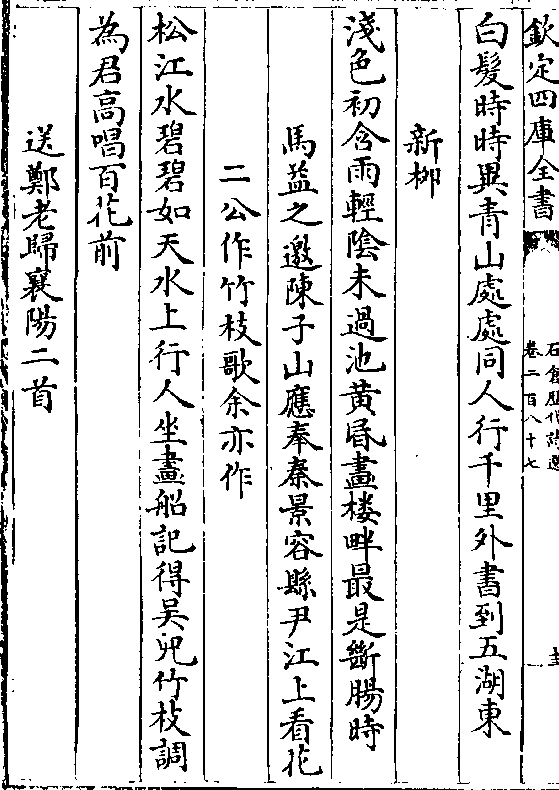 欽定四庫全書
石倉歷代詩選
卷二百八十七
白髮時時異青山處處同人行千里外書到五湖東
新柳
淺色初含雨輕陰未過池黃昏畫樓畔最是斷腸時
馬益之邀陳子山應奉秦景容縣尹江上看花
二公作竹枝歌余亦作
松江水碧碧如天水上行人坐畫船記得吳兒竹枝調
為君高唱百花前
送鄭老歸襄陽二首